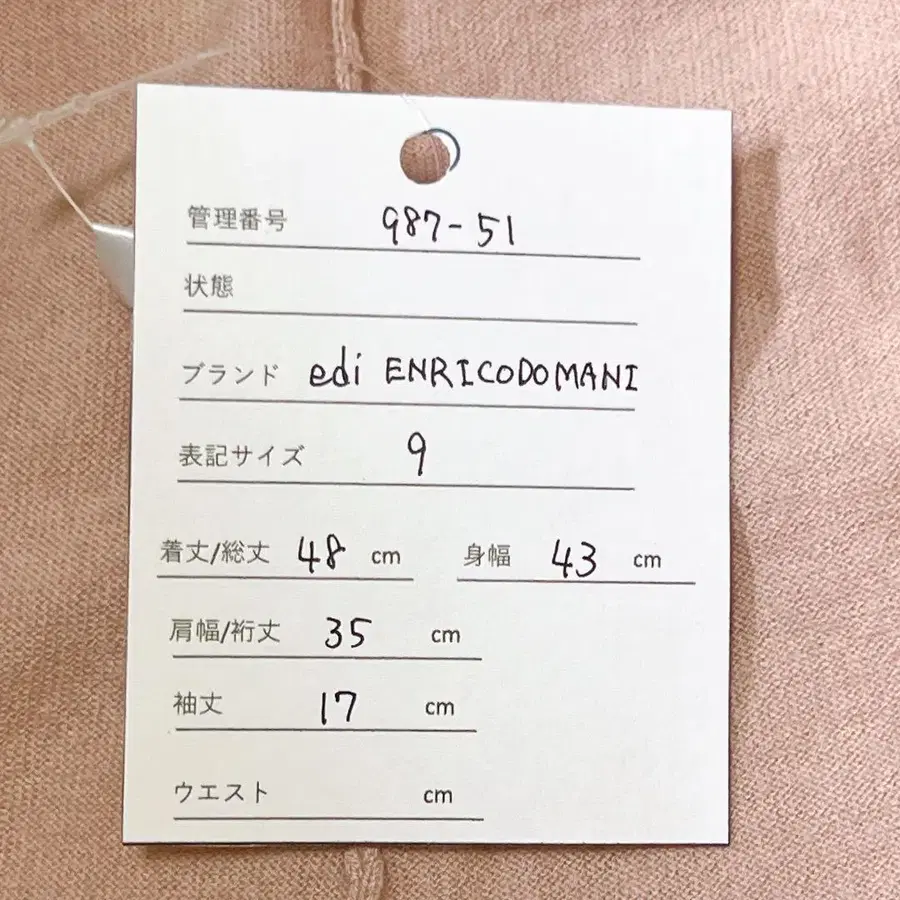 管理番号 987-51
状態
ブランド edi ENRICODOMANI
表記サイズ 9
着丈/総丈 48 cm 身幅 43 cm
肩幅/裄丈 35 cm
袖丈 17 cm
ウエスト cm